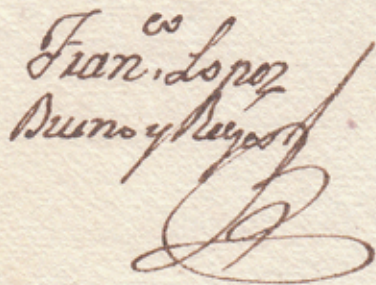 Fran.co Lopez
Bueno y Reyes